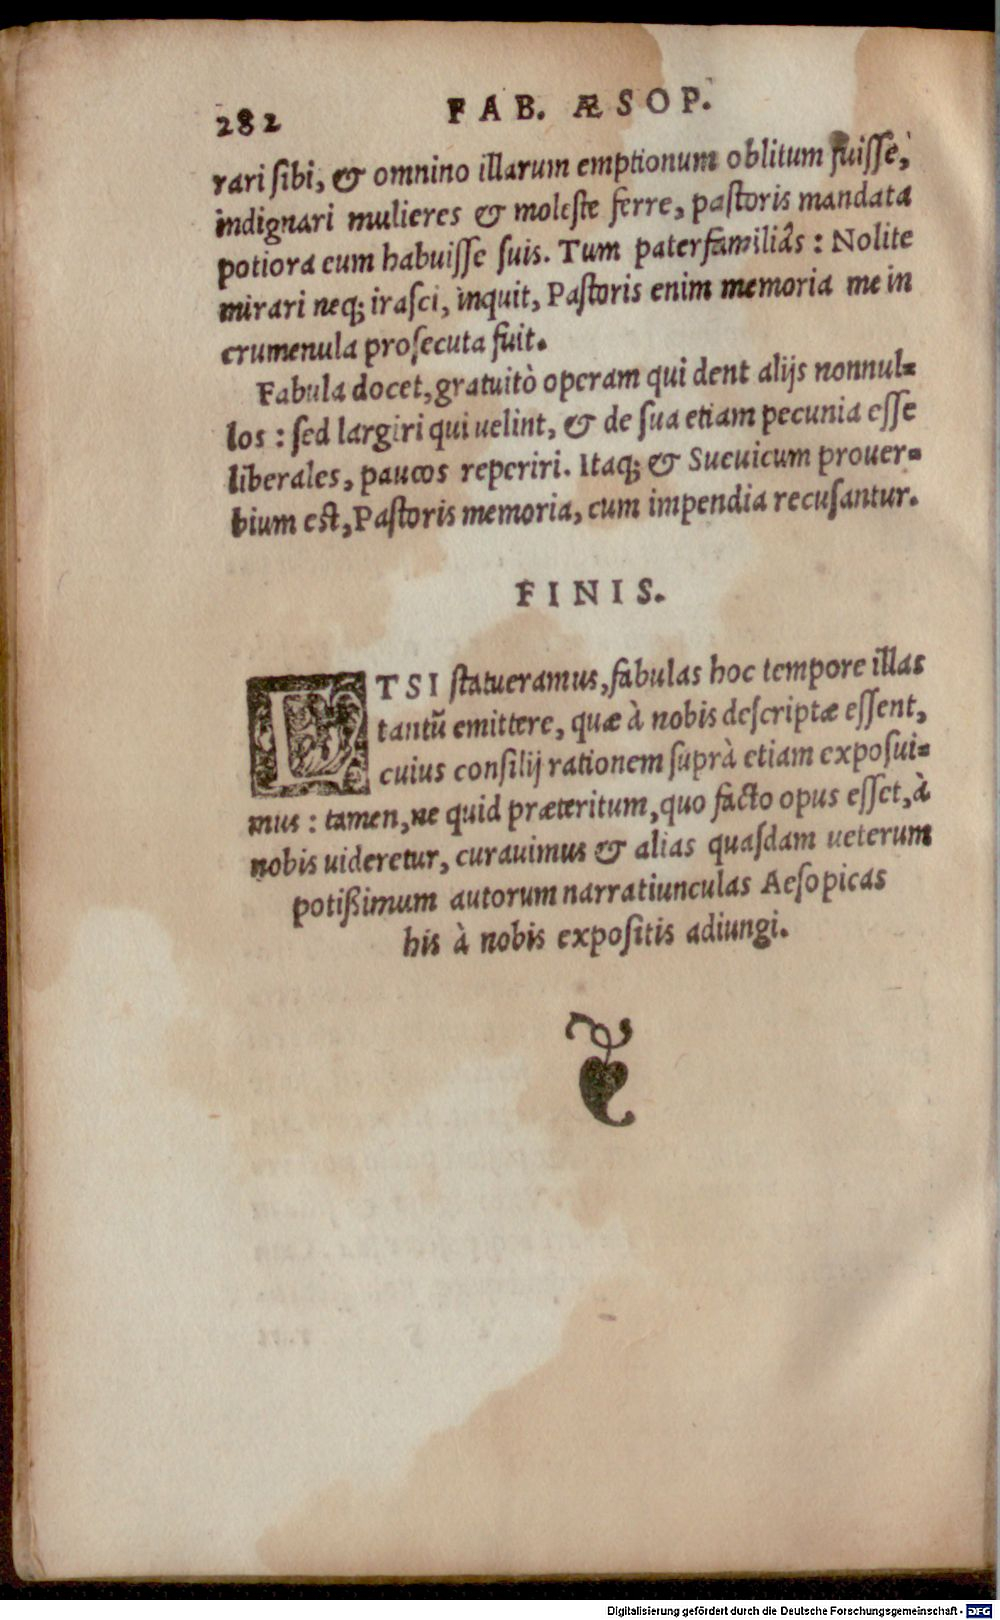 282 FAB. ÆSOP.
rari ſibi, & omnino illarum emptionum oblitum fuiſſe,
indignari mulieres & moleſte ferre, paſtoris mandata
potiora eum habuiſſe ſuis. Tum paterfamiliâs : Nolite
mirari neq; iraſci, inquit, Paſtoris enim memoria me in
crumenula proſecuta fuit.
Fabula docet, gratuitò operam qui dent alijs nonnul=
los : ſed largiri qui uelint, & de ſua etiam pecunia eſſe
liberales, paucos reperiri. Itaq; & Sueuicum prouer=
bium eſt, Paſtoris memoria, cum impendia recuſantur.
FINIS.
ETSI ſtatueramus, fabulas hoc tempore illas
tantũ emittere, quæ à nobis deſcriptæ eſſent,
cuius conſilij rationem ſuprà etiam expoſui=
mus : tamen, ne quid præteritum, quo facto opus eſſet, à
nobis uideretur, curauimus & alias quaſdam ueterum
potißimum autorum narratiunculas Aeſopicas
his à nobis expoſitis adiungi.
Digitalisierung gefördert durch die Deutsche Forschungsgemeinschaft - DFG